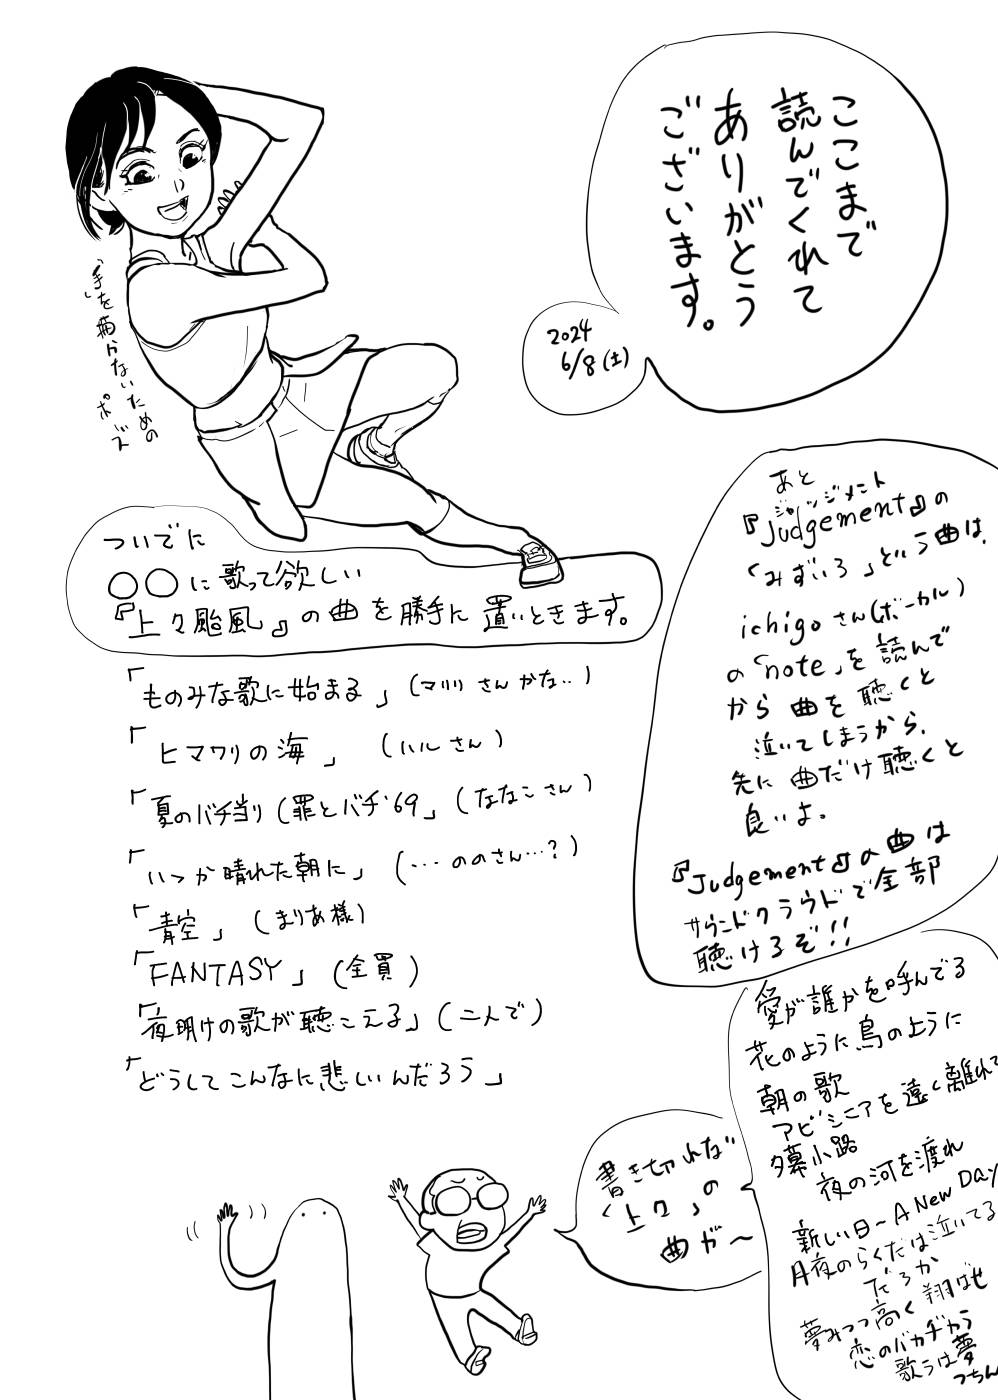 ここまで
読んでくれて
ありがとう
ございます。
2024
6/8(土)
手を描かないための
ポーズ
ついでに
○○に歌って欲しい
『上々颱風』の曲を勝手に置いときます。
「ものみな歌に始まる」(マリリさんかな‥)
「ヒマワリの海」(ハルさん)
「夏のバチ当り(罪とバチ'69」(ななこさん)
「いつか晴れた朝に」(…ののさん…?)
「青空」(まりあ様)
「FANTASY」(全員)
「夜明けの歌が聴こえる」(二人で)
「どうしてこんなに悲しいんだろう」
あと
ジャッジメント
『Judgement』の
「みずいろ」という曲は、
ichigoさん(ボーカル)
の「note」を読んで
から曲を聴くと
泣いてしまうから、
先に曲だけ聴くと
良いよ。
『Judgement』の曲は
サウンドクラウドで全部
聴けるぞ!!
愛が誰かを呼んでる
花のように鳥のように
朝の歌
アビシニアを遠く離れて
夕幕小路
夜の河を渡れ
新しい日〜A New Day
月夜のらくだは泣いてる
だろか
夢みつつ高く翔ばせ
恋のバカヂカラ
歌うは夢
つちん
書き切れない
「上々」の
曲が〜